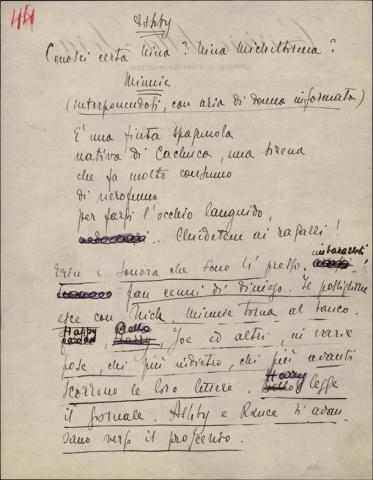 44
Ashby
Conosci certa Nina? Nina Micheltorena?
Minnie
(interponendosi, con aria di donna informata)
È una finta spagnola
nativa di Cachuca, una sirena
che fa molto consumo
di nerofumo
per farsi l'occhio languido,
... Chiedetene ai ragazzi!
Trin e Sonora che sono lì presso, imbarazzati
fan cenni di diniego. Il postiglione
esce con Nick. Minnie torna al banco.
Happy, Bello, Joe ed altri, in varie
pose, chi più indietro, chi più avanti
scorrono le loro lettere. Harry legge
il giornale. Ashby e Rance si avan-
zano verso il proscenio.